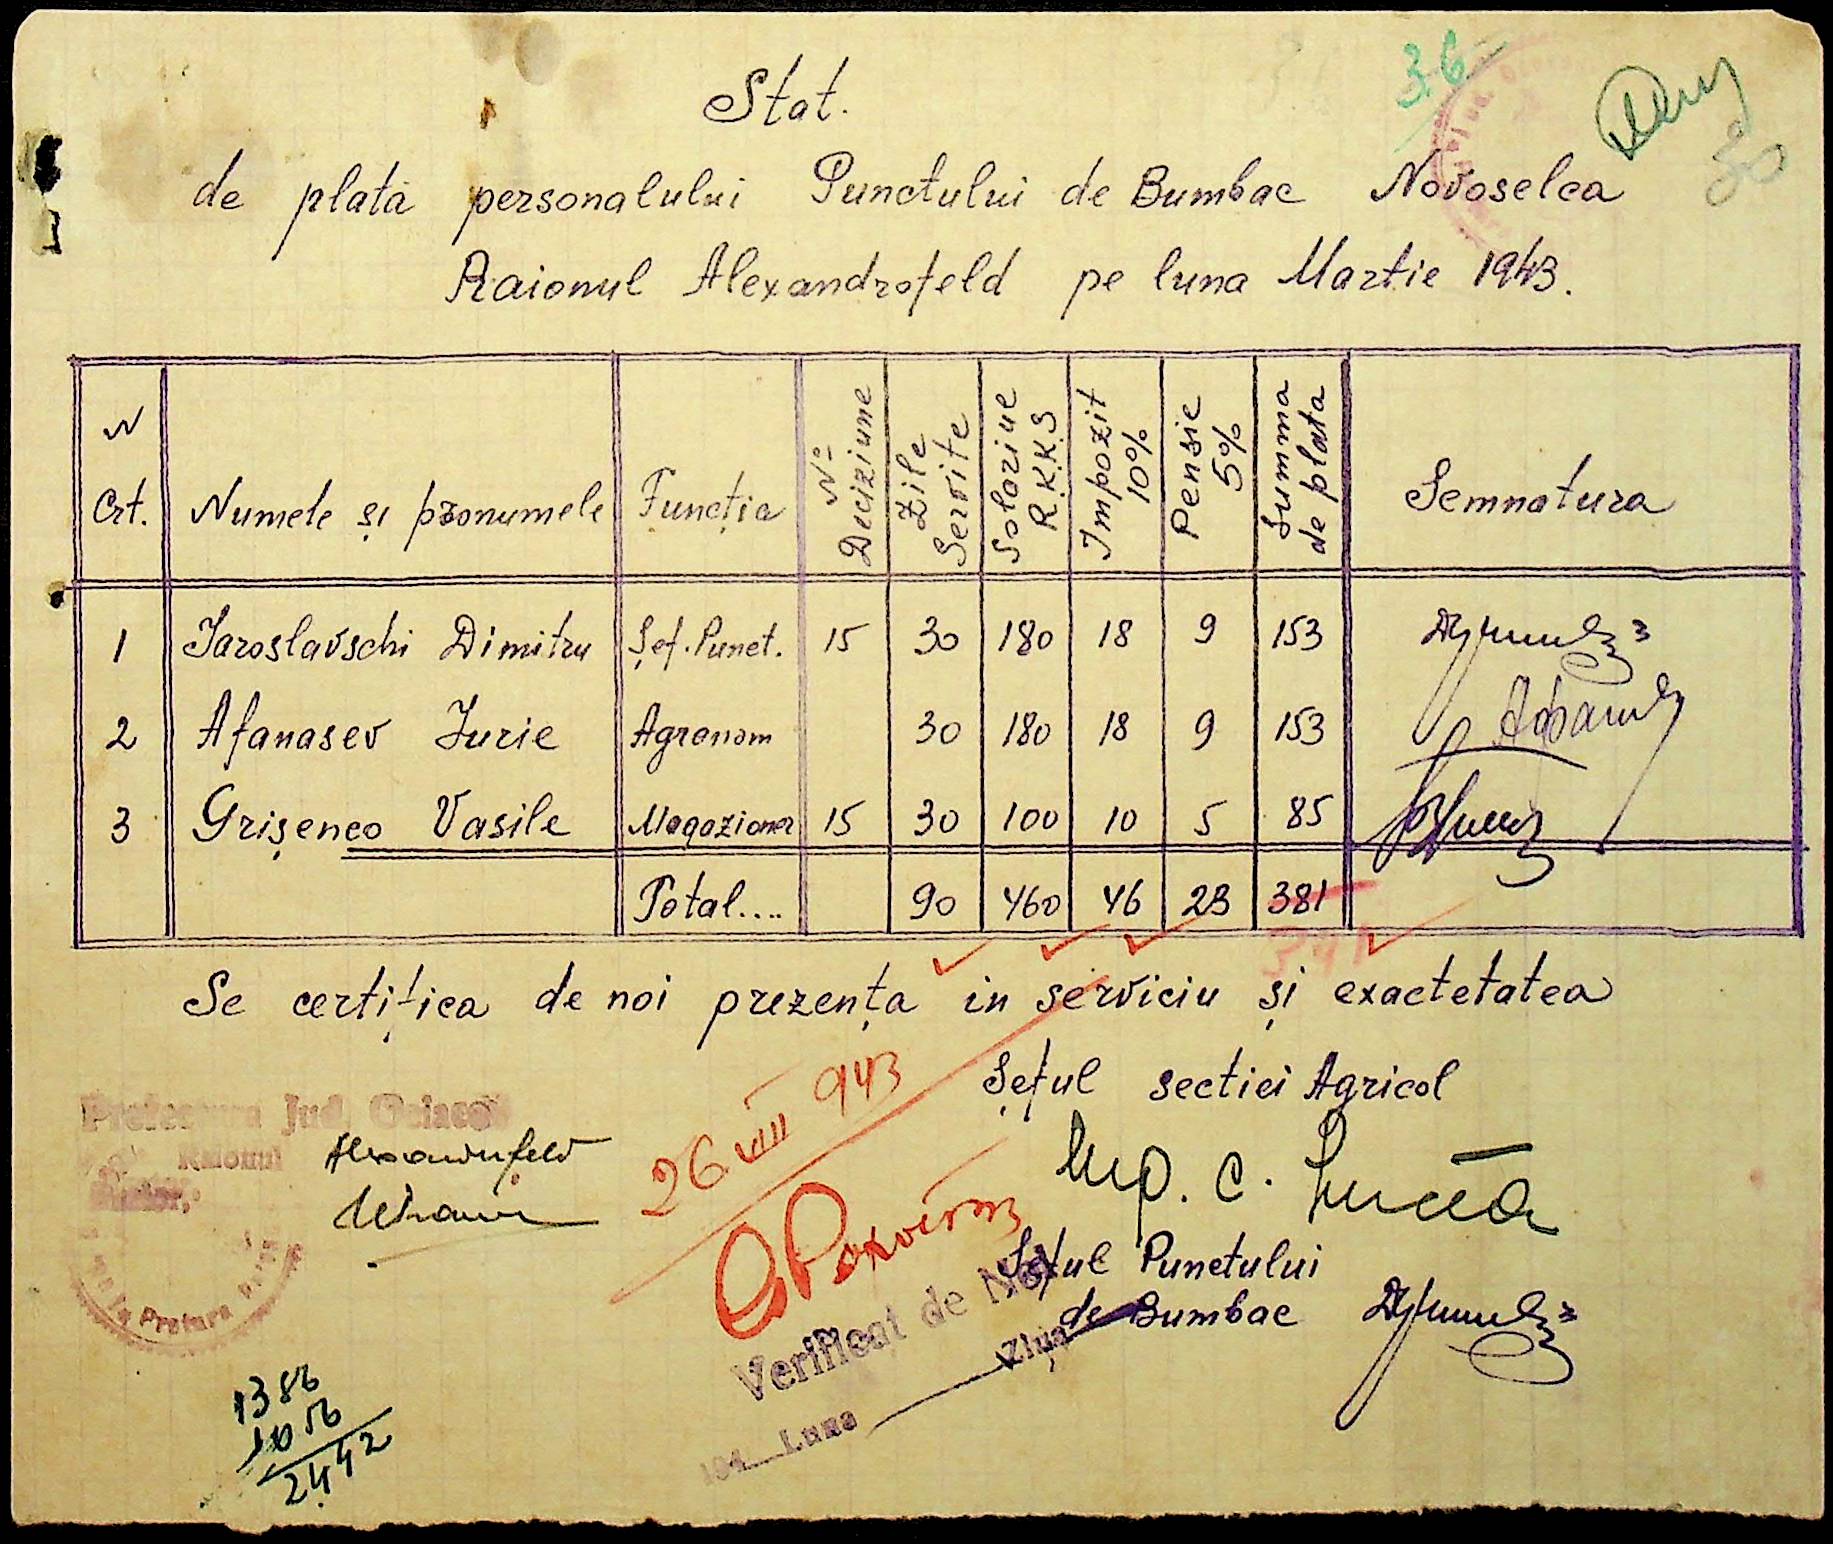 36
30
Stat.
de plată personalului Punctului de Bumbac Novoselca
Raionul Alexandrofeld pe luna Martie 1943.
N Crt. Numele și pronumele Funcția Nº Deciziune Zile Servite Solariul R.K.K.S Impozit 10% Pensie 5% Summa de plata Semnatura
1 Iaroslavschi Dimitru Șef. Punct. 15 30 180 18 9 153
2 Afanasev Iurie Agronom 30 180 18 9 153
3 Grișenco Vasile Magazioner 15 30 100 10 5 85
Total.... 90 460 46 23 381
391
Se certifica de noi prezența in serviciu și exactetatea
Șeful sectiei Agricol
Prefectura Jud.
Raionul Alexandrfeld
26 VIII 943
Ing. C.
Șeful Punctului
de Bumbac
Verificat de Noi
Ziua
194 Luna
Pretura
1386
1056
2442